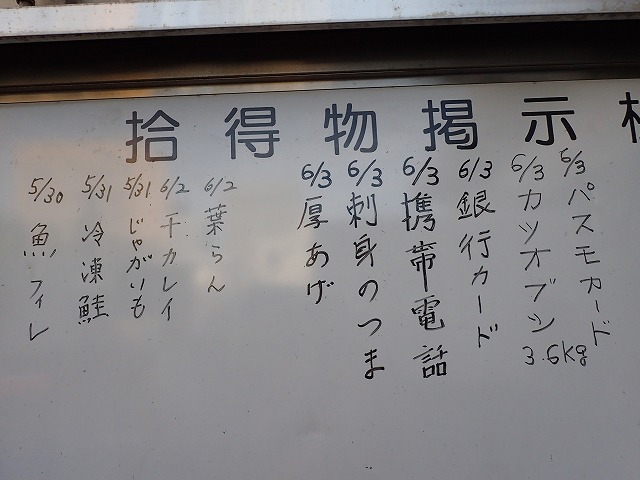 拾得物掲示板
6/3 パスモカード
6/3 カツオブシ 3.6kg
6/3 銀行カード
6/3 携帯電話
6/3 刺身のつま
6/3 厚あげ
6/2 葉らん
6/2 干カレイ
5/31 じゃがいも
5/31 冷凍鮭
5/30 魚フィレ